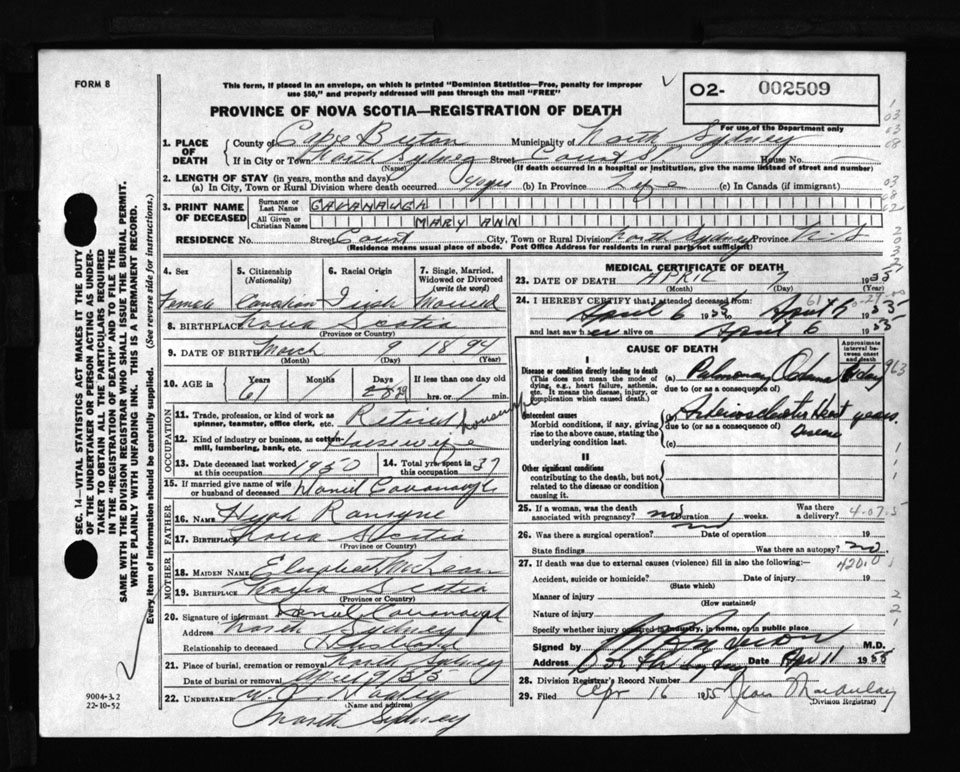 FORM 8
This form, if placed in an envelope, on which is printed "Dominion Statistics—Free, penalty for improper
use $50," and properly addressed will pass through the mail "FREE"
O2- 002509
For use of the Department only
PROVINCE OF NOVA SCOTIA—REGISTRATION OF DEATH
1. PLACE OF DEATH
County of Cape Breton Municipality of North Sydney
If in City or Town North Sydney Street Court St. House No.
(Name) (If death occurred in a hospital or institution, give the name instead of street and number)
2. LENGTH OF STAY (in years, months and days)
(a) In City, Town or Rural Division where death occurred (b) In Province Life (c) In Canada (if immigrant)
3. PRINT NAME OF DECEASED
Surname or Last Name CAVANAUGH
All Given or Christian Names MARY ANN
RESIDENCE No. Street Court City, Town or Rural Division North Sydney Province N-S
(Residence means usual place of abode. Post Office Address for residents in rural parts not sufficient)
4. Sex 5. Citizenship (Nationality) 6. Racial Origin 7. Single, Married, Widowed or Divorced (write the word)
Female Canadian Irish Married
8. BIRTHPLACE Nova Scotia
(Province or Country)
9. DATE OF BIRTH March 9 1894
(Month) (Day) (Year)
10. AGE in Years Months Days If less than one day old
61 1 28 hrs. or min.
OCCUPATION
11. Trade, profession, or kind of work as spinner, teamster, office clerk, etc. Retired
12. Kind of industry or business, as cotton-mill, lumbering, bank, etc. Housewife
13. Date deceased last worked at this occupation 1950 14. Total yrs. spent in this occupation 37
15. If married give name of wife or husband of deceased Daniel Cavanaugh
FATHER
16. NAME Hugh
17. BIRTHPLACE Nova Scotia
(Province or Country)
MOTHER
18. MAIDEN NAME Elizabeth McLean
19. BIRTHPLACE Nova Scotia
(Province or Country)
20. Signature of informant Daniel Cavanaugh
Address North Sydney
Relationship to deceased Husband
21. Place of burial, cremation or removal North Sydney
Date of burial or removal April 9 1955
22. UNDERTAKER
(Name and address)
North Sydney
MEDICAL CERTIFICATE OF DEATH
23. DATE OF DEATH APRIL 7 1955
(Month) (Day) (Year)
24. I HEREBY CERTIFY that I attended deceased from:
April 6 1955 to April 7 1955
and last saw her alive on April 6 1955
CAUSE OF DEATH
Approximate interval between onset and death
I
Disease or condition directly leading to death
(This does not mean the mode of dying, e.g., heart failure, asthenia, etc. It means the disease, injury, or complication which caused death.)
(a) Pulmonary Odema 1 day
due to (or as a consequence of)
Antecedent causes
Morbid conditions, if any, giving rise to the above cause, stating the underlying condition last.
(b) Arteriosclerotic Heart Disease years.
due to (or as a consequence of)
(c)
II
Other significant conditions
contributing to the death, but not related to the disease or condition causing it.
25. If a woman, was the death associated with pregnancy? no Duration weeks. Was there a delivery?
26. Was there a surgical operation? no Date of operation 19
State findings Was there an autopsy? no
27. If death was due to external causes (violence) fill in also the following:—
Accident, suicide or homicide? Date of injury 19
(State which)
Manner of injury
(How sustained)
Nature of injury
Specify whether injury occurred in industry, in home, or in public place
Signed by M.D.
Address Date Apr 11 1955
28. Division Registrar's Record Number
29. Filed Apr 16 1955 Jean Macaulay
(Division Registrar)
SEC. 14—VITAL STATISTICS ACT MAKES IT THE DUTY
OF THE UNDERTAKER OR PERSON ACTING AS UNDER-
TAKER TO OBTAIN ALL THE PARTICULARS REQUIRED
IN THE "REGISTRATION OF DEATH" AND TO FILE THE
SAME WITH THE DIVISION REGISTRAR WHO SHALL ISSUE THE BURIAL PERMIT.
WRITE PLAINLY WITH UNFADING INK. THIS IS A PERMANENT RECORD.
Every item of information should be carefully supplied. (See reverse side for instructions.)
9004-3.2
22-10-52